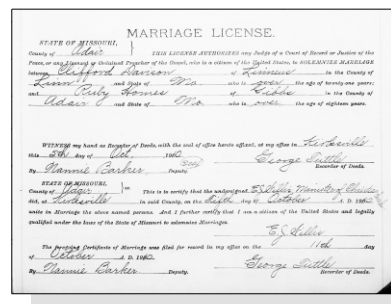 MARRIAGE LICENSE.
STATE OF MISSOURI,
County of Adair THIS LICENSE AUTHORIZES any Judge of a Court of Record or Justice of the
Peace, or any Licensed or Ordained Preacher of the Gospel, who is a citizen of the United States, to SOLEMNIZE MARRIAGE
between Clifford Davison of Linneus in the County of
Linn and State of Mo who is over the age of twenty-one years;
and Ruby Homes of Gibbs in the County of
Adair and State of Mo. who is over the age of eighteen years.
WITNESS my hand as Recorder of Deeds, with the seal of office hereto affixed, at my office in Kirksville
this 5th day of Oct, 19
Seal George Tuttle
By Nannie Barker Deputy. Recorder of Deeds.
STATE OF MISSOURI,
County of Adair ss. This is to certify that the undersigned E.J. Willer, Minister of
did, at Kirksville in said County, on the Fifth day of October A. D.
unite in Marriage the above named persons. And I further certify that I am a citizen of the United States and legally
qualified under the laws of the State of Missouri to solemnize Marriages.
E J Willer
The foregoing Certificate of Marriage was filed for record in my office on the 11th day
of October A. D.
George Tuttle
By Nannie Barker Deputy. Recorder of Deeds.